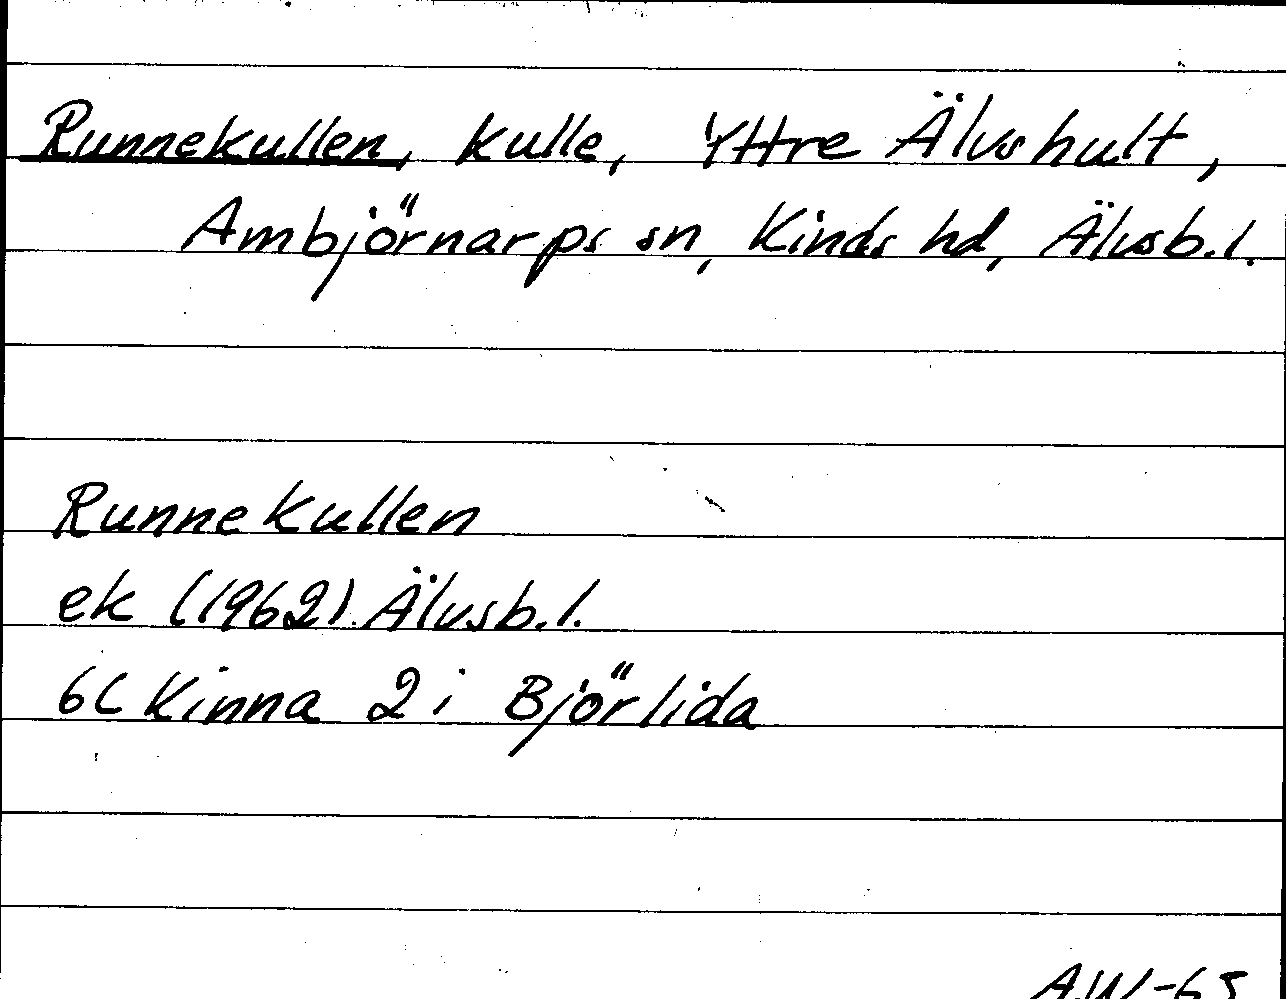 Runnekullen, kulle, Yttre Älvshult,
Ambjörnarps sn, Kinds hd, Älvsb.l.
Runnekullen
ek (1962) Älvsb.l.
6C Kinna 2i Björlida
AW-65